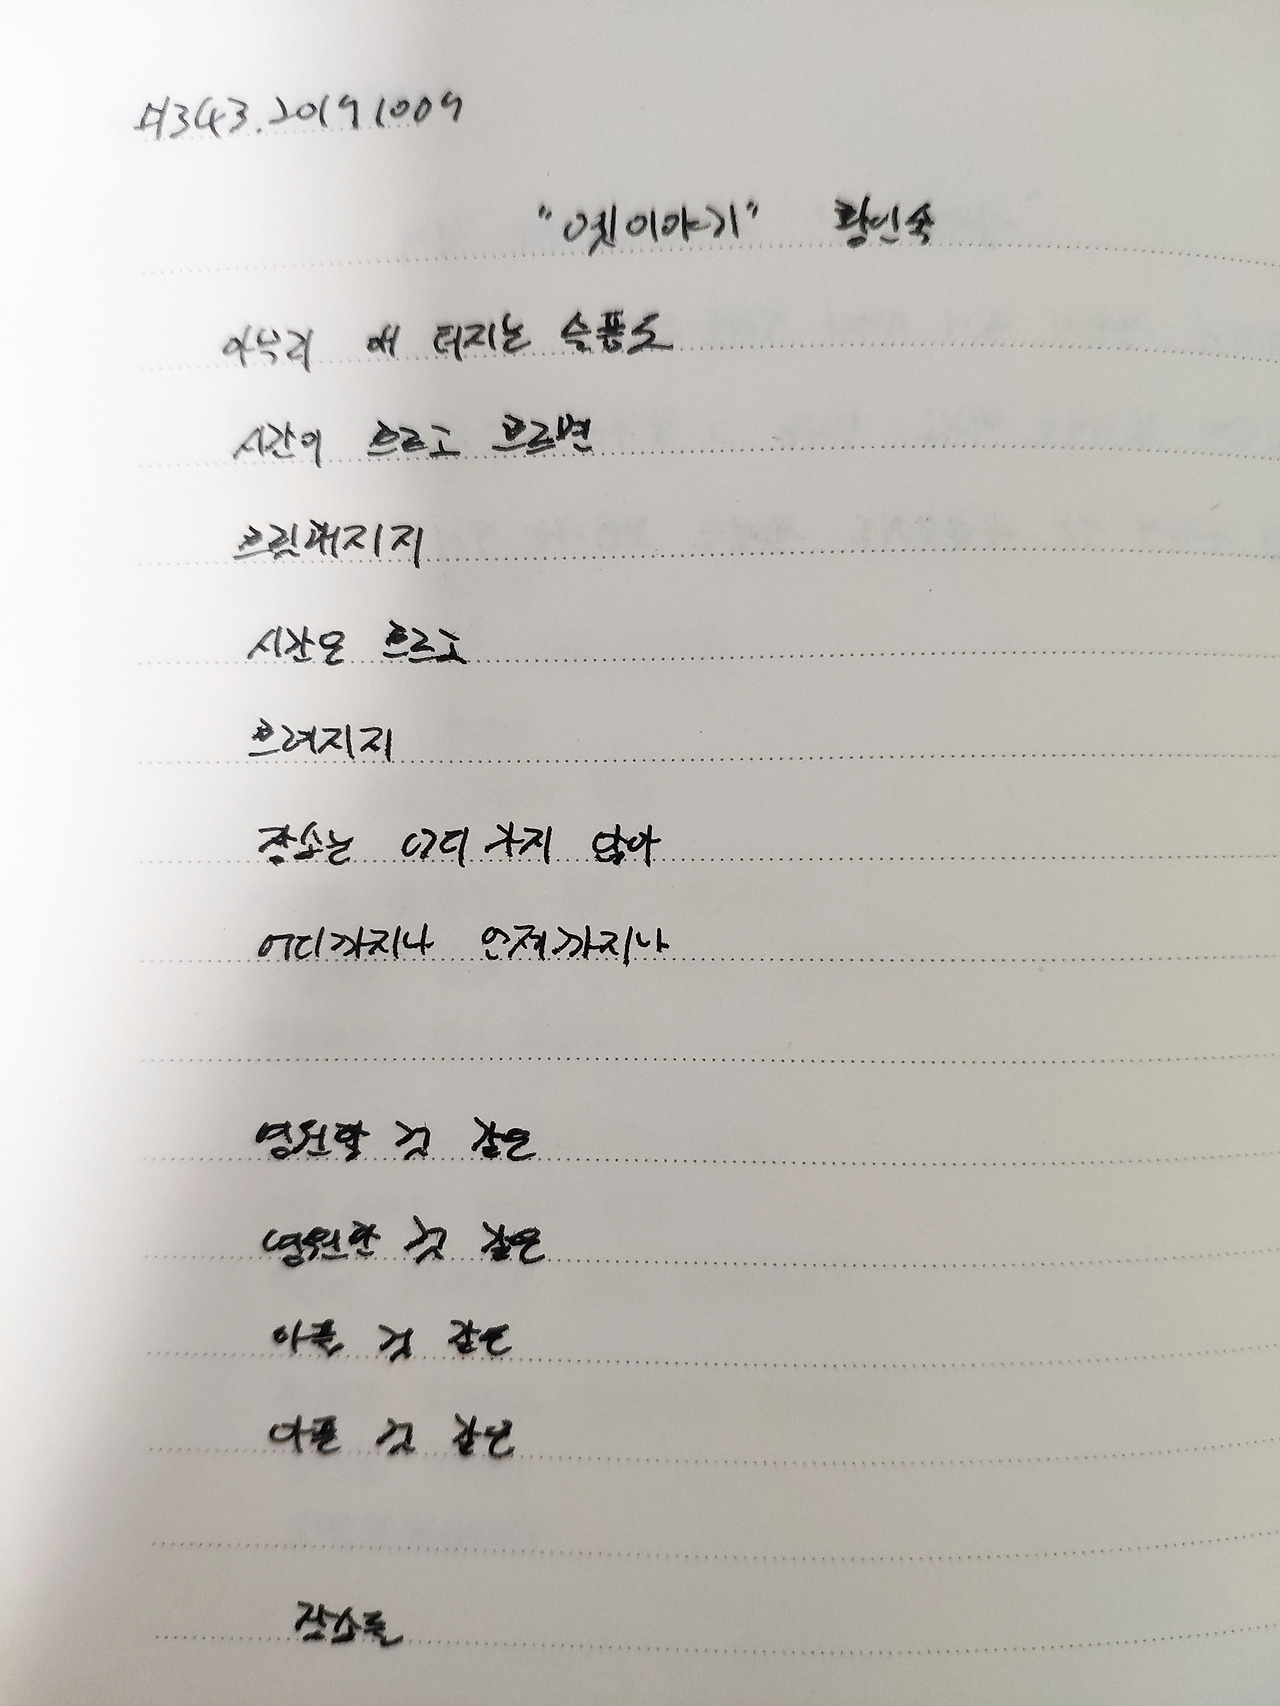 #343.20191009
"옛이야기" 황인숙
아무리 애 터지는 슬픔도
시간이 흐르고 흐르면
흐릿해지지
시간은 흐르고
흐려지지
장소는 어디 가지 않아
어디까지나 언제까지나
영원할 것 같은
영원한 것 같은
아플 것 같은
아픈 것 같은
장소들